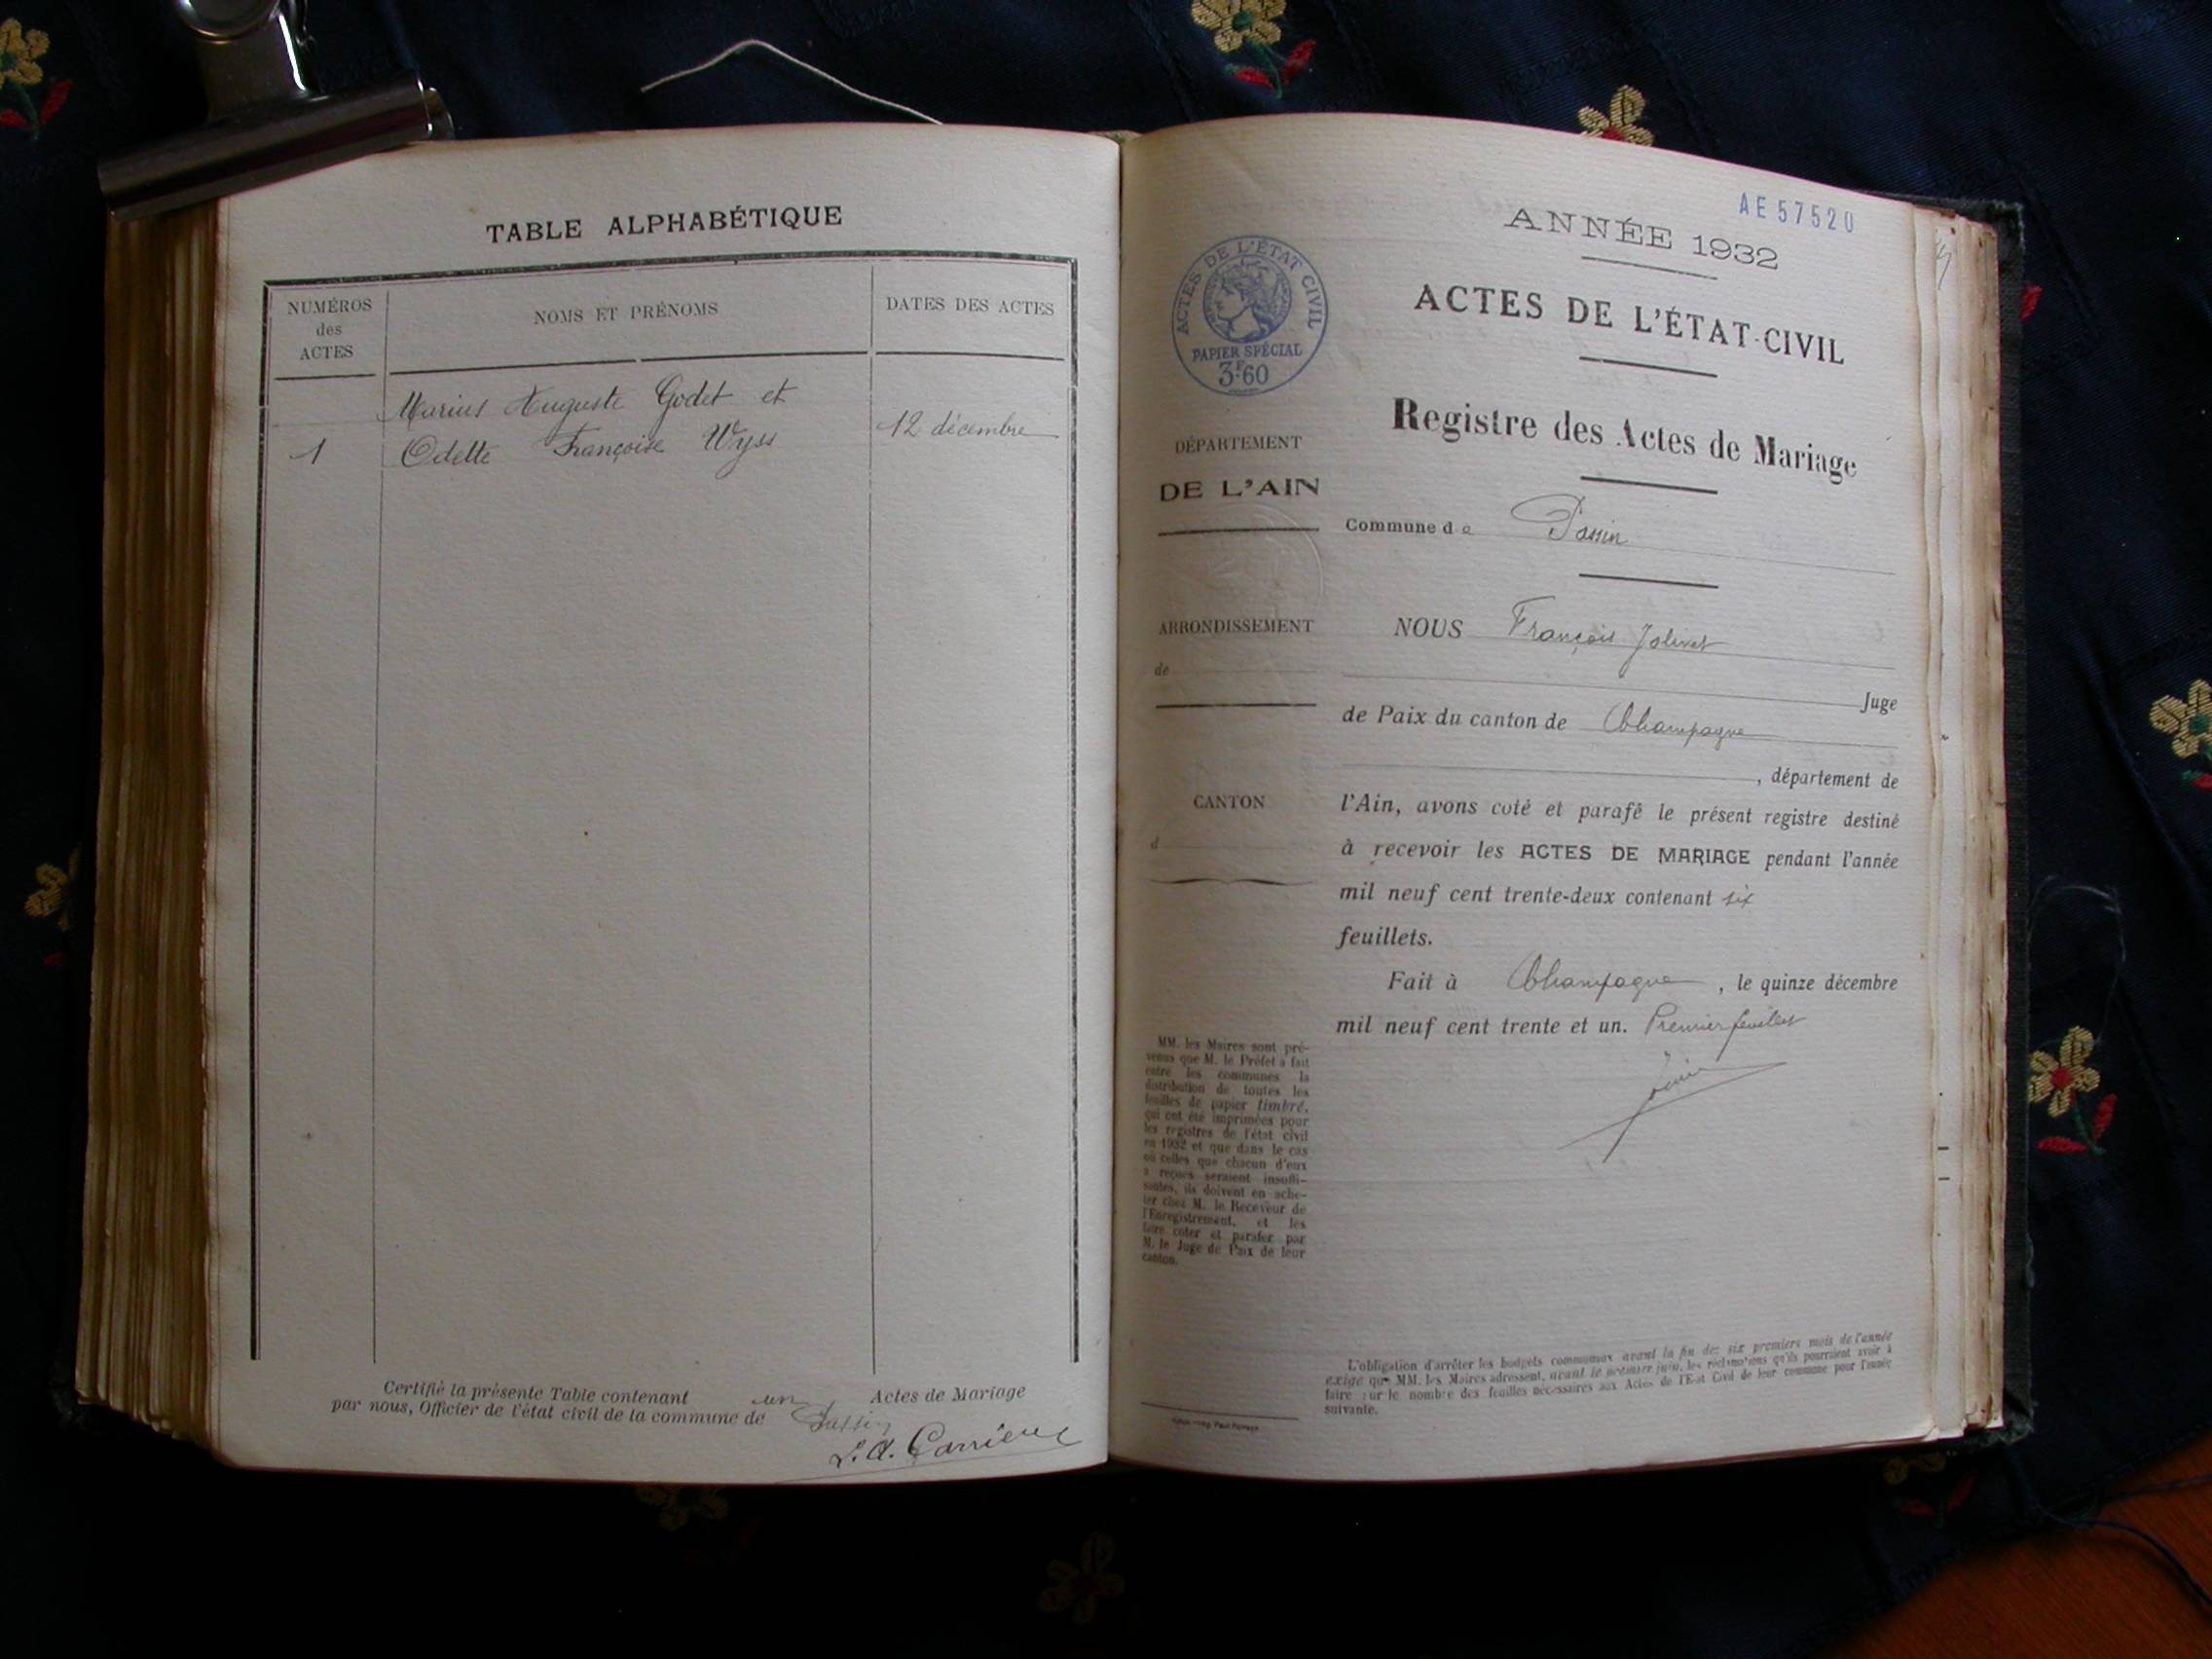 TABLE ALPHABÉTIQUE
NUMÉROS
des
ACTES
NOMS ET PRÉNOMS
DATES DES ACTES
Marius Auguste Godet et
1 Odette Françoise Wyss
12 décembre
Certifié la présente Table contenant un Actes de Mariage
par nous, Officier de l'état civil de la commune de Passin
L. A. Carrier
AE 57520
ANNÉE 1932
ACTES DE L'ÉTAT CIVIL
PAPIER SPÉCIAL
3F60
ACTES DE L'ÉTAT-CIVIL
Registre des Actes de Mariage
DÉPARTEMENT
DE L'AIN
Commune de Passin
ARRONDISSEMENT
de
NOUS François Jolivet
Juge
de Paix du canton de Champagne
, département de
CANTON
d
l'Ain, avons coté et parafé le présent registre destiné
à recevoir les ACTES DE MARIAGE pendant l'année
mil neuf cent trente-deux contenant six
feuillets.
Fait à Champagne, le quinze décembre
mil neuf cent trente et un. Premier feuillet
MM. les Maires sont pré-
venus que M. le Préfet a fait
entre les communes la
distribution de toutes les
feuilles de papier timbré,
qui ont été imprimées pour
les registres de l'état civil
en 1932 et que dans le cas
où celles que chacun d'eux
a reçues seraient insuffi-
santes, ils doivent en ache-
ter chez M. le Receveur de
l'Enregistrement, et les
faire coter et parafer par
M. le Juge de Paix de leur
canton.
L'obligation d'arrêter les budgets communaux avant la fin des six premiers mois de l'année
exige que MM. les Maires adressent, avant le premier juin, les réclamations qu'ils pourraient avoir à
faire sur le nombre des feuilles nécessaires aux Actes de l'Etat Civil de leur commune pour l'année
suivante.